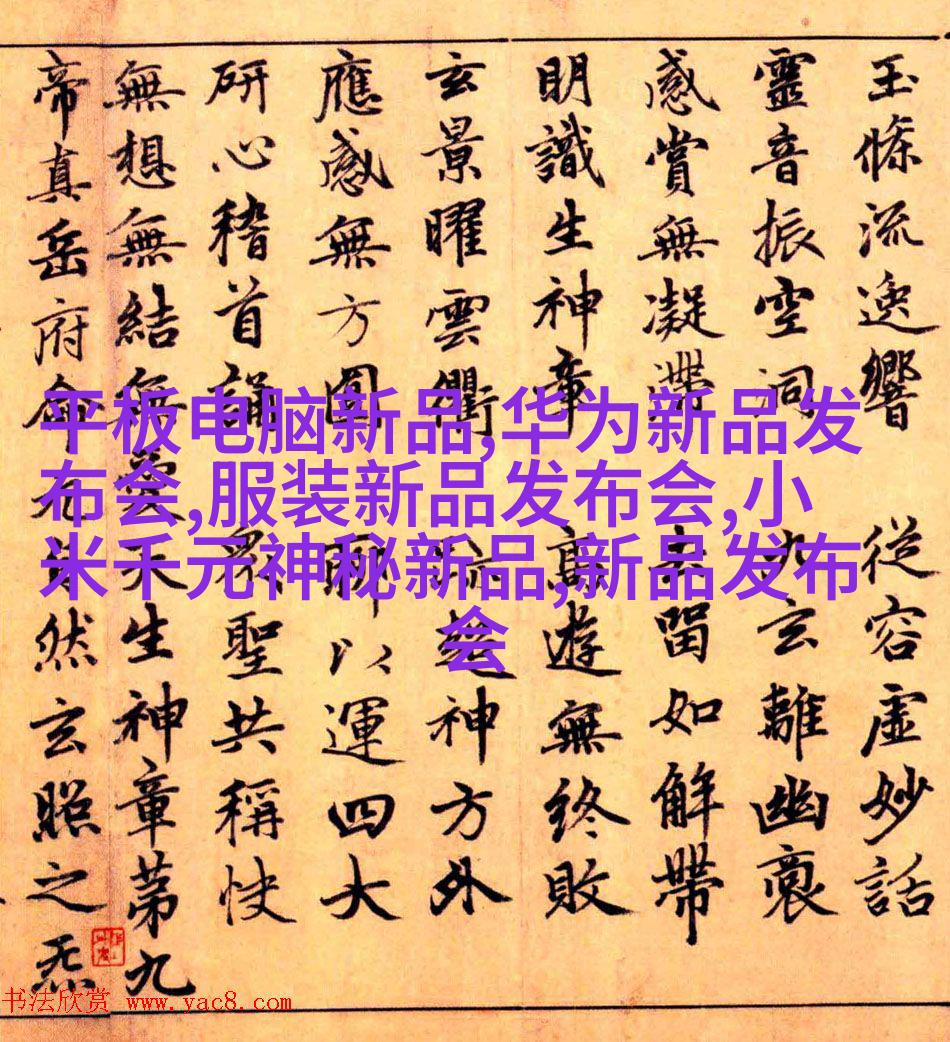 玉條流逸響 從容虛妙話
靈音振空洞 九玄離幽
感賞無凝滯 去留如解帶
明識生神章 高遊無終敗
玄景曜雲衢 跡超神方外
應感無方圓 聊以運四大
研心稽首誦 眾聖共稱快
無想無結無愛天生神章第九
帝真岳府命元 然玄照之炁
平板电脑新品,华为新品发
布会,服装新品发布会,小
米千元神秘新品,新品发布
会
书法欣赏 www.yac8.com